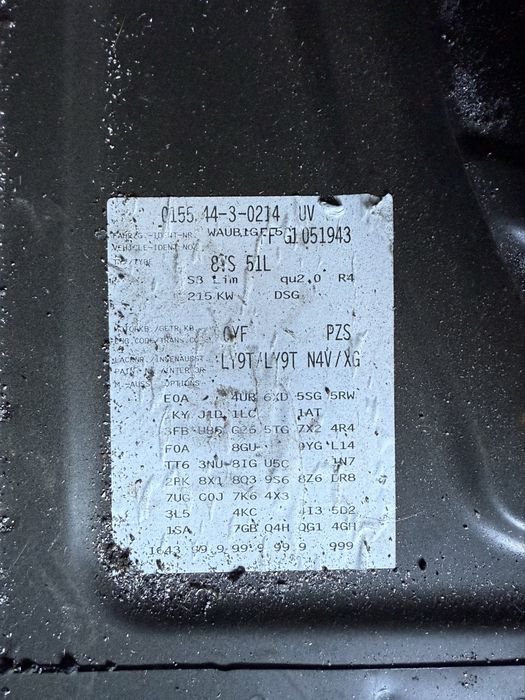 0155 44-3-0214 UV
FAHRZG.-IDENT-NR. WAUB1GFF5G1051943
VEHICLE-IDENT NO.
TYP/TYPE 8VS 51L
S3 Lim qu2.0 R4
215 KW DSG
MOTORKB./GETR.KB. PZS
ENG.CODE/TRANS.CODE
LACKNR./INNENAUSST. LY9T/LY9T N4V/XG
PAINT NO./INTERIOR
M.-AUSST. OPTIONS
E0A 4UB 6XD 5SG 5RW
J1D 1LC 1AT
3FB 5TG 7X2 4R4
F0A 8GU 0YG L14
TT6 3NU 8IG U5C 1N7
2PK 8X1 8Q3 9S6 8Z6 DR8
7UG C0J 7K6 4X3
3L5 4KC 4I3 5D2
1SA 7GB Q4H QG1 4GH
99.9 99.9 99.9 999